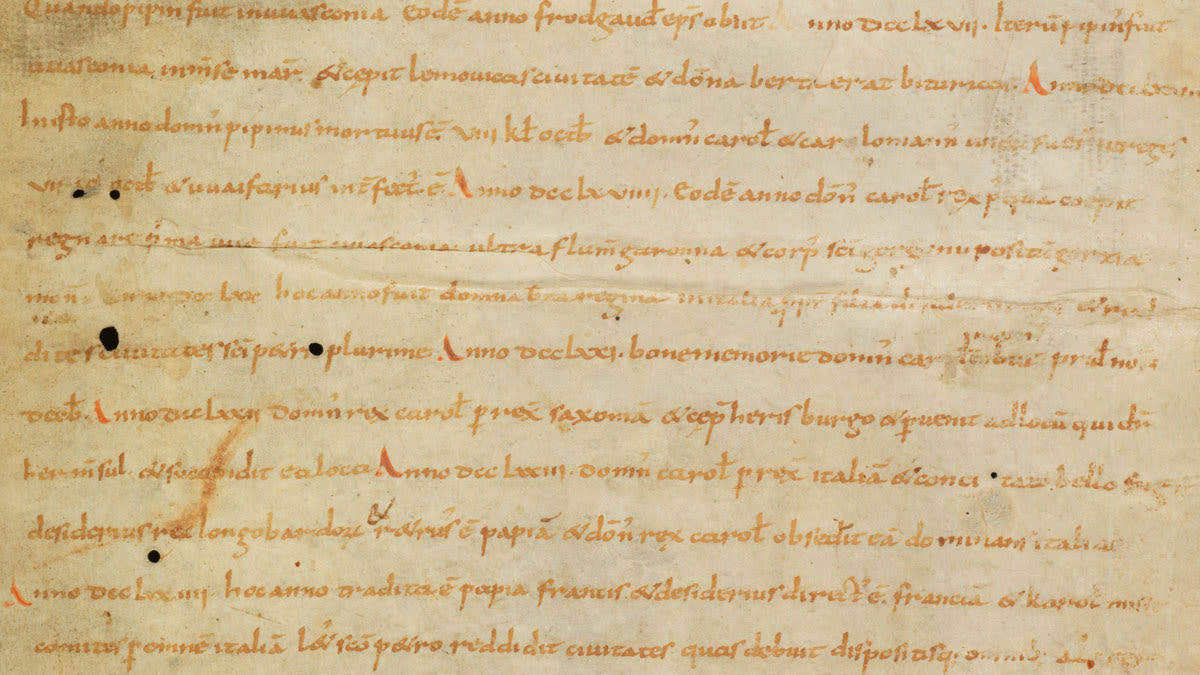 Quando pipin fuit in uuasconia Eodē anno frodgaud eps obiit Anno DCCLXVII. Iterū pipiñ fuit
uuasconia inm̄se mar̄ & cepit lemouicas ciuitatē & dōna berta erat bituricas Anno
In isto anno domn̄ pipinus mortuus ē VIII kł octb̄ & domn̄ caroł & carlomann̄
VII octb̄ & uuaifarius int̄fect̄ ē Anno DCCLXVIIII. Eodē anno dōn̄ caroł rex
regnare p̄ma uice fuit uuasconia ultra flum̄ garonna & corp̄ sc̄i gorgonu positū gorzia
mon̄ DCCLXX hoc anno fuit domna b̄ta regina in italia & red
dite s̄ ciuitates sc̄i p&ri plurime. Anno DCCLXXI. bone memorie domn̄ car prid no
decb̄. Anno DCCLXXII Domn̄ rex caroł p̄rex̄ saxoniā & cep̄ heris burgo & p̄uenit ad locū qui dr̄
ḱermsul & succendit ea loca Anno DCCLXXIII. Domn̄ caroł p̄rex̄ italiā & conci tato bello
desiderius rex longobardorū & r&rus̄ ē papiā & dōn̄ rex caroł obsed̄it eā dominans italia
Anno DCCLXXIIII hoc anno tradita ē papia francis. & desiderius direct̄ ē franciā & karoł
comites p̄ omnē italiā l&̄ sc̄o p&ro reddidit ciuitates quas debuit dispositisq;